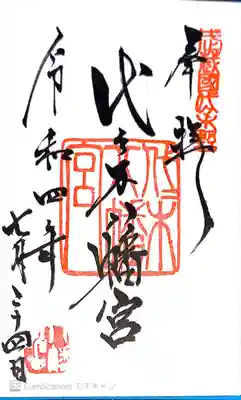 奉拝
武蔵國代々木
代々木八幡宮
令和四年
七月二十四日
CamScanner でスキャン